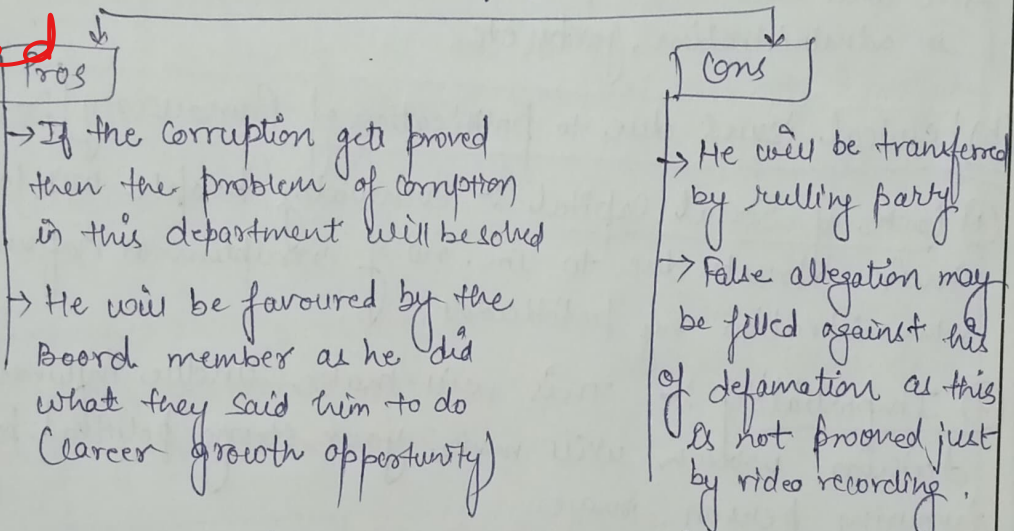 Pros
→ If the corruption gets proved
then the problem of corruption
in this department will be solved
→ He will be favoured by the
Board member as he did
what they said him to do
(career growth opportunity)
Cons
→ He will be transferred
by rulling party
→ False allegation may
be filled against his
of defamation as this
is not prooved just
by video recording.